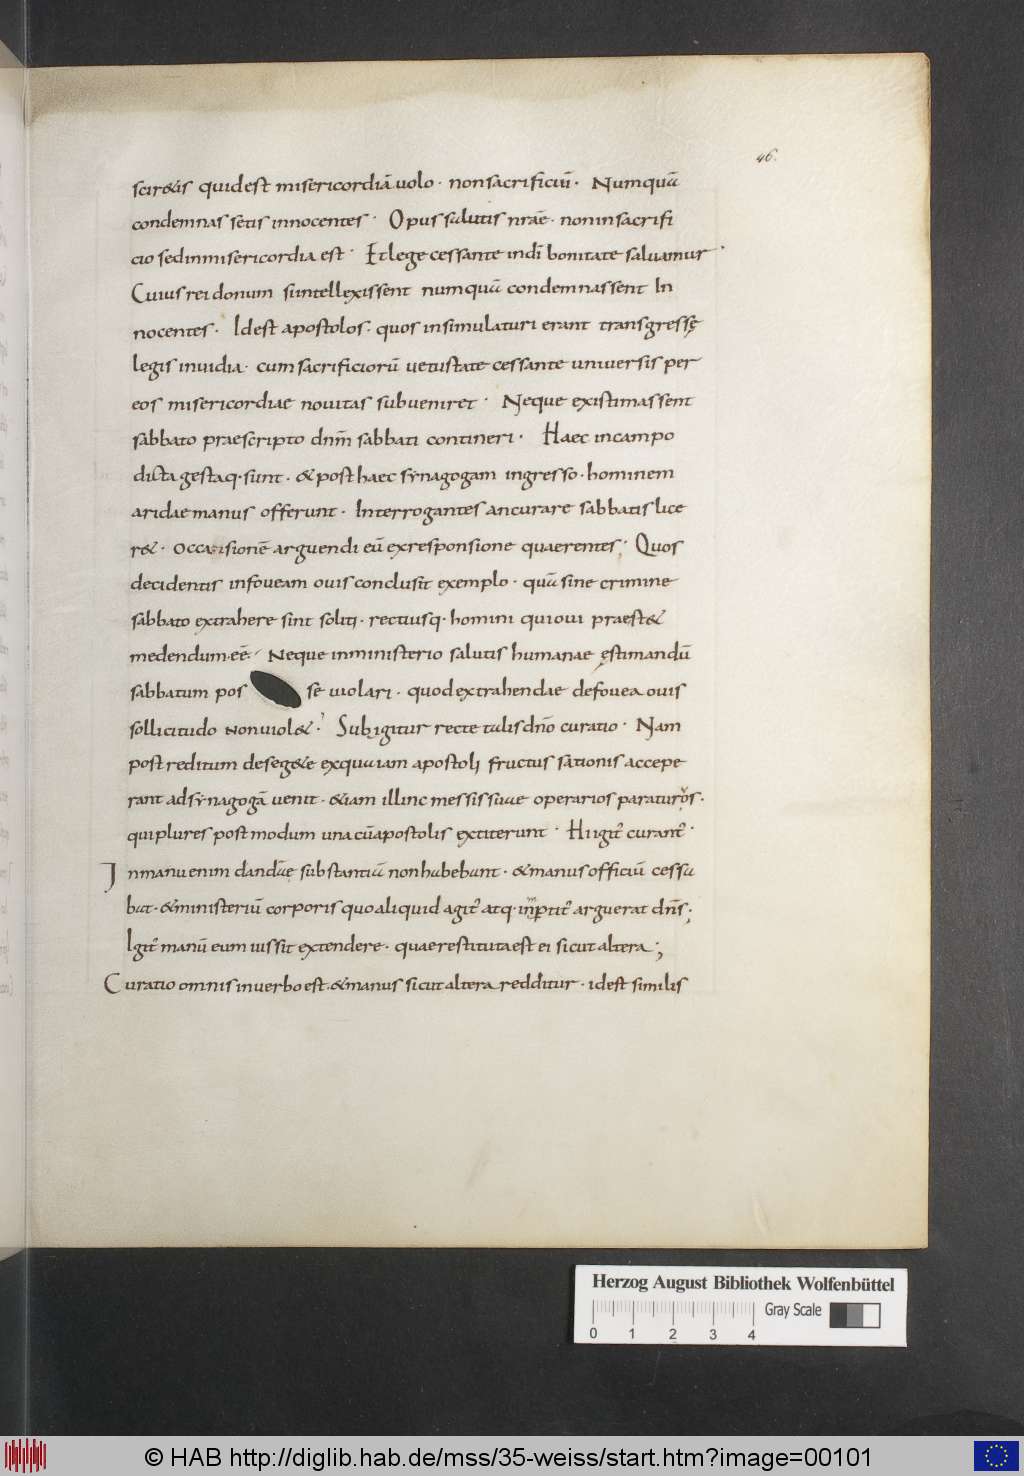 46.
scir&is quidest misericordiā uolo · nonsacrificiū · Numquā
condemnassetis innocentes · Opus salutis nrāe · noninsacrifi
cio sedinmisericordia est · Etlege cessante indī bonitate saluamur ·
Cuius rei donum siintellexissent numquā condemnassent In
nocentes · Idest apostolos · quos insimulaturi erant transgressę
legis inuidia · cum sacrificiorū uetustate cessante uniuersis per
eos misericordiae nouitas subueniret · Neque existimassent
sabbato praescripto dnm̄ sabbati contineri · Haec incampo
dicta gestaq· sunt · & post haec synagogam ingresso · hominem
aridae manus offerunt · Interrogantes ancurare sabbatis lice
r& · occasionē arguendi eū exresponsione quaerentes · Quos
decidentis infoueam ouis conclusit exemplo · quā sine crimine
sabbato extrahere sint soliti · rectiusq· homini quioui praest&
medendum eē · Neque inministerio salutis humanae ęstimandū
sabbatum pos se uiolari · quod extrahendae defouea ouis
sollicitudo nonuiol& · Subigitur recte talis dnō curatio · Nam
post reditum deseg&e exqua iam apostoli fructus sationis accepe
rant ad synagogā uenit · &iam illinc messis suae operarios paraturos ·
qui plures post modum una cū apostolis extiterunt · Hi igit̄ curant̄ ·
Inmanu enim dandae substantiā non habebant · & manus officiū cessa
bat · & ministeriū corporis quo aliquid agit̄ atq· arguerat dn̄s ;
Igit̄ manū eum iussit extendere · quae restituta est ei sicut altera ;
Curatio omnis inuerbo est · & manus sicut altera redditur · idest similis
Herzog August Bibliothek Wolfenbüttel
Gray Scale
0 1 2 3 4
© HAB http://diglib.hab.de/mss/35-weiss/start.htm?image=00101